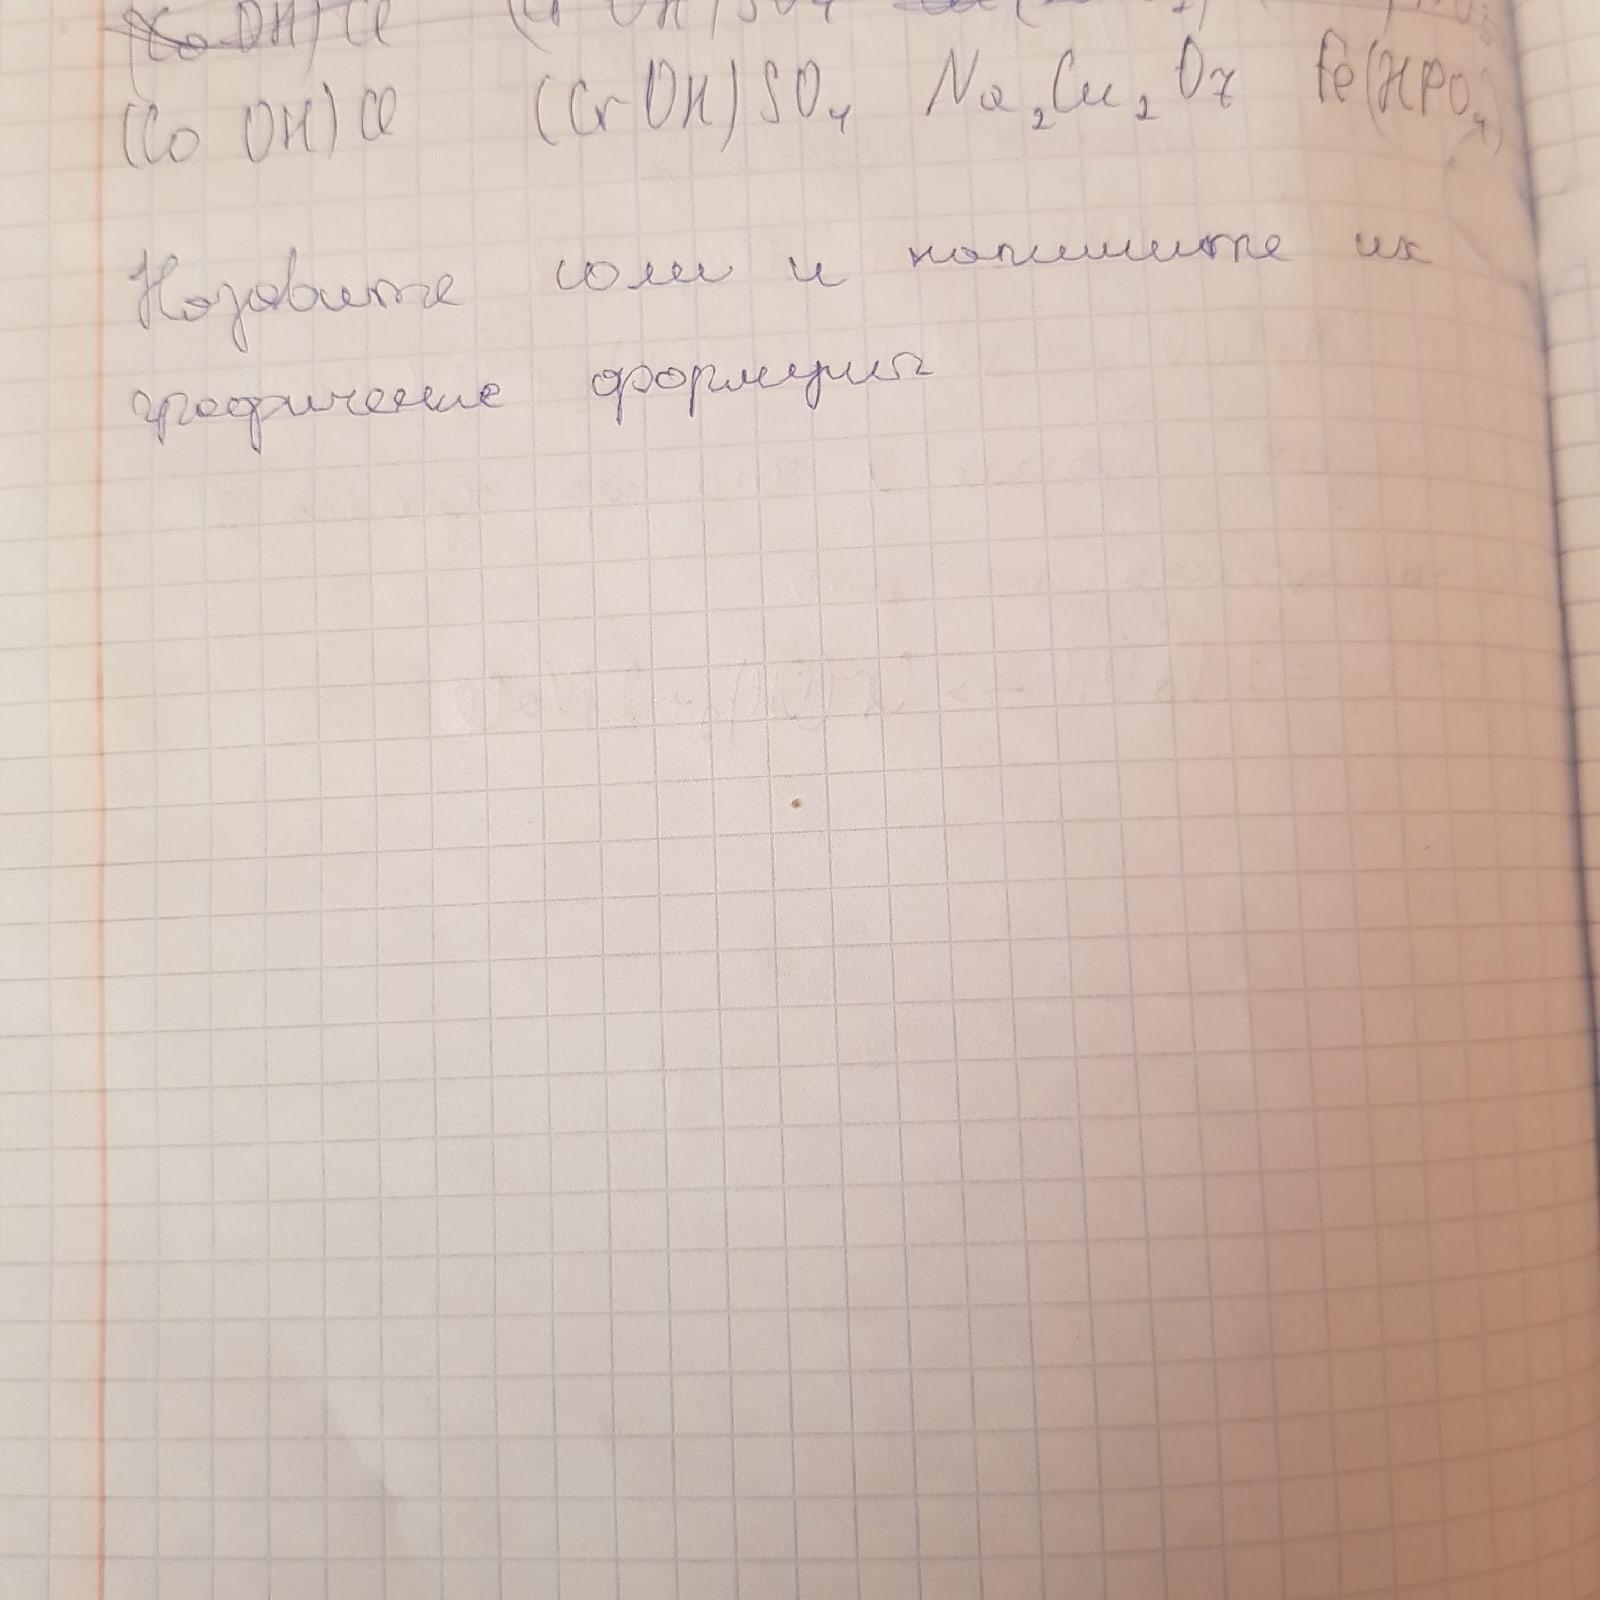 (Co OH) Cl (Cr OH) SO₄
(Co OH) Cl (Cr OH) SO₄ Na₂Cu₂O7 Fe(HPO₄)
Назовите соли и напишите их
графические формулы